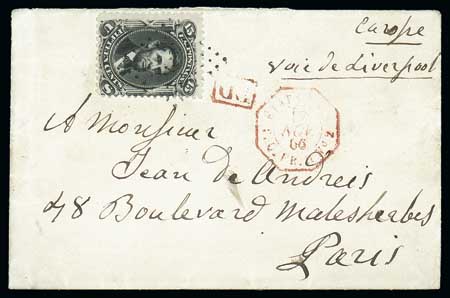 Europe
voie de Liverpool
PD
66
No 2
A Monsieur
Jean de Andreis
48 Boulevard Malesherbes
Paris